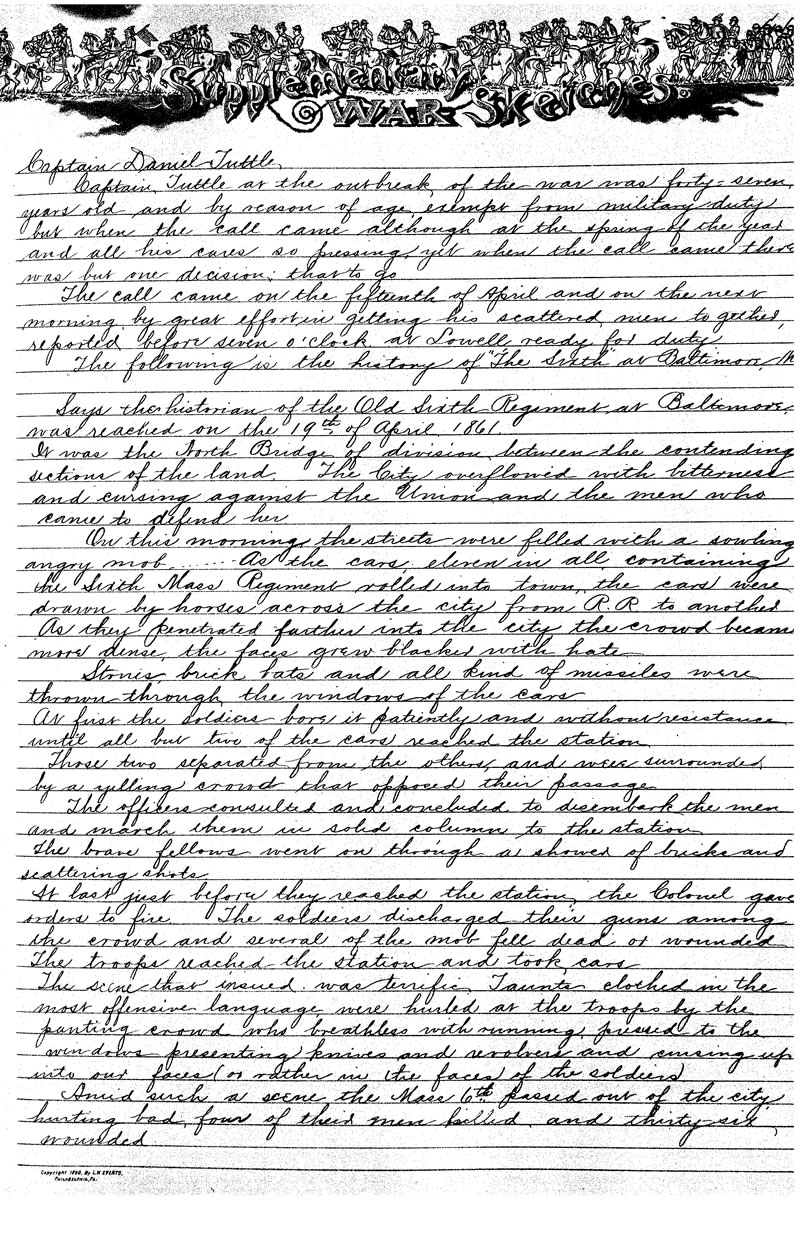 Supplementary
WAR Sketches.
Captain Daniel Tuttle,
Captain, Tuttle at the outbreak, of the war was forty-seven,
years old and by reason of age, exempt from military duty
but when the call came although at the spring of the year
and all his cares so pressing, yet when the call came there
was but one decision; that to go
The call came on the fifteenth of April and on the next
morning, by great effort in getting his scattered, men to gether,
reported before seven o'clock at Lowell ready for duty
The following is the history of "The Sixth" at Baltimore, M
Says the historian of the Old Sixth Regiment, at Baltimore,
was reached on the 19th of April 1861.
It was the North Bridge of division, between the contending
sections of the land. The City overflowed with bitterness
and cursing against the Union and the men who
came to defend her
On this morning, the streets were filled with a sowling
angry mob ...... As the cars, eleven in all, containing
the Sixth Mass Regiment rolled into town, the cars were
drawn by horses across the city from R.R to another
As they penetrated farther into the city the crowd becam
more dense, the faces grew blacker with hate
Stones, brick bats and all kind of missiles were
thrown through, the windows of the cars
At first the soldiers bore it patiently and without resistance
until all but two of the cars reached the station
Those two separated from the others, and were surrounded,
by a yelling crowd that opposed their passage
The officers consulted and concluded to disembark the men
and march them in solid column to the station
The brave fellows went on through a shower of bricks and
scattering shots
At last just before they reached the station, the Colonel gave
orders to fire. The soldiers discharged their guns among
the crowd and several of the mob fell dead or wounded
The troops reached the station and took, cars
The scene that insued was terrific, Taunts clothed in the
most offensive language, were hurled at the troops by the
panting crowd who breathless with running, pressed to the
windows presenting knives and revolvers and cursing up
into our faces (or rather in the faces of the soldiers)
Amid such a scene the Mass 6th passed out of the city
hurting bad, four of their men killed and thirty six,
wounded.
Copyright 1890, By L.H EVERTS,
PHILADELPHIA, PA.